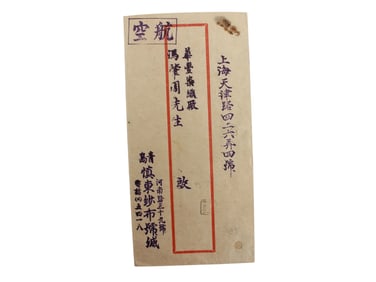 空航
上海天津路四二六弄四號
華豐染織廠
馮肇周先生
啟
青島
河南路三十九號
慎東紗布號緘
電話
五四一八